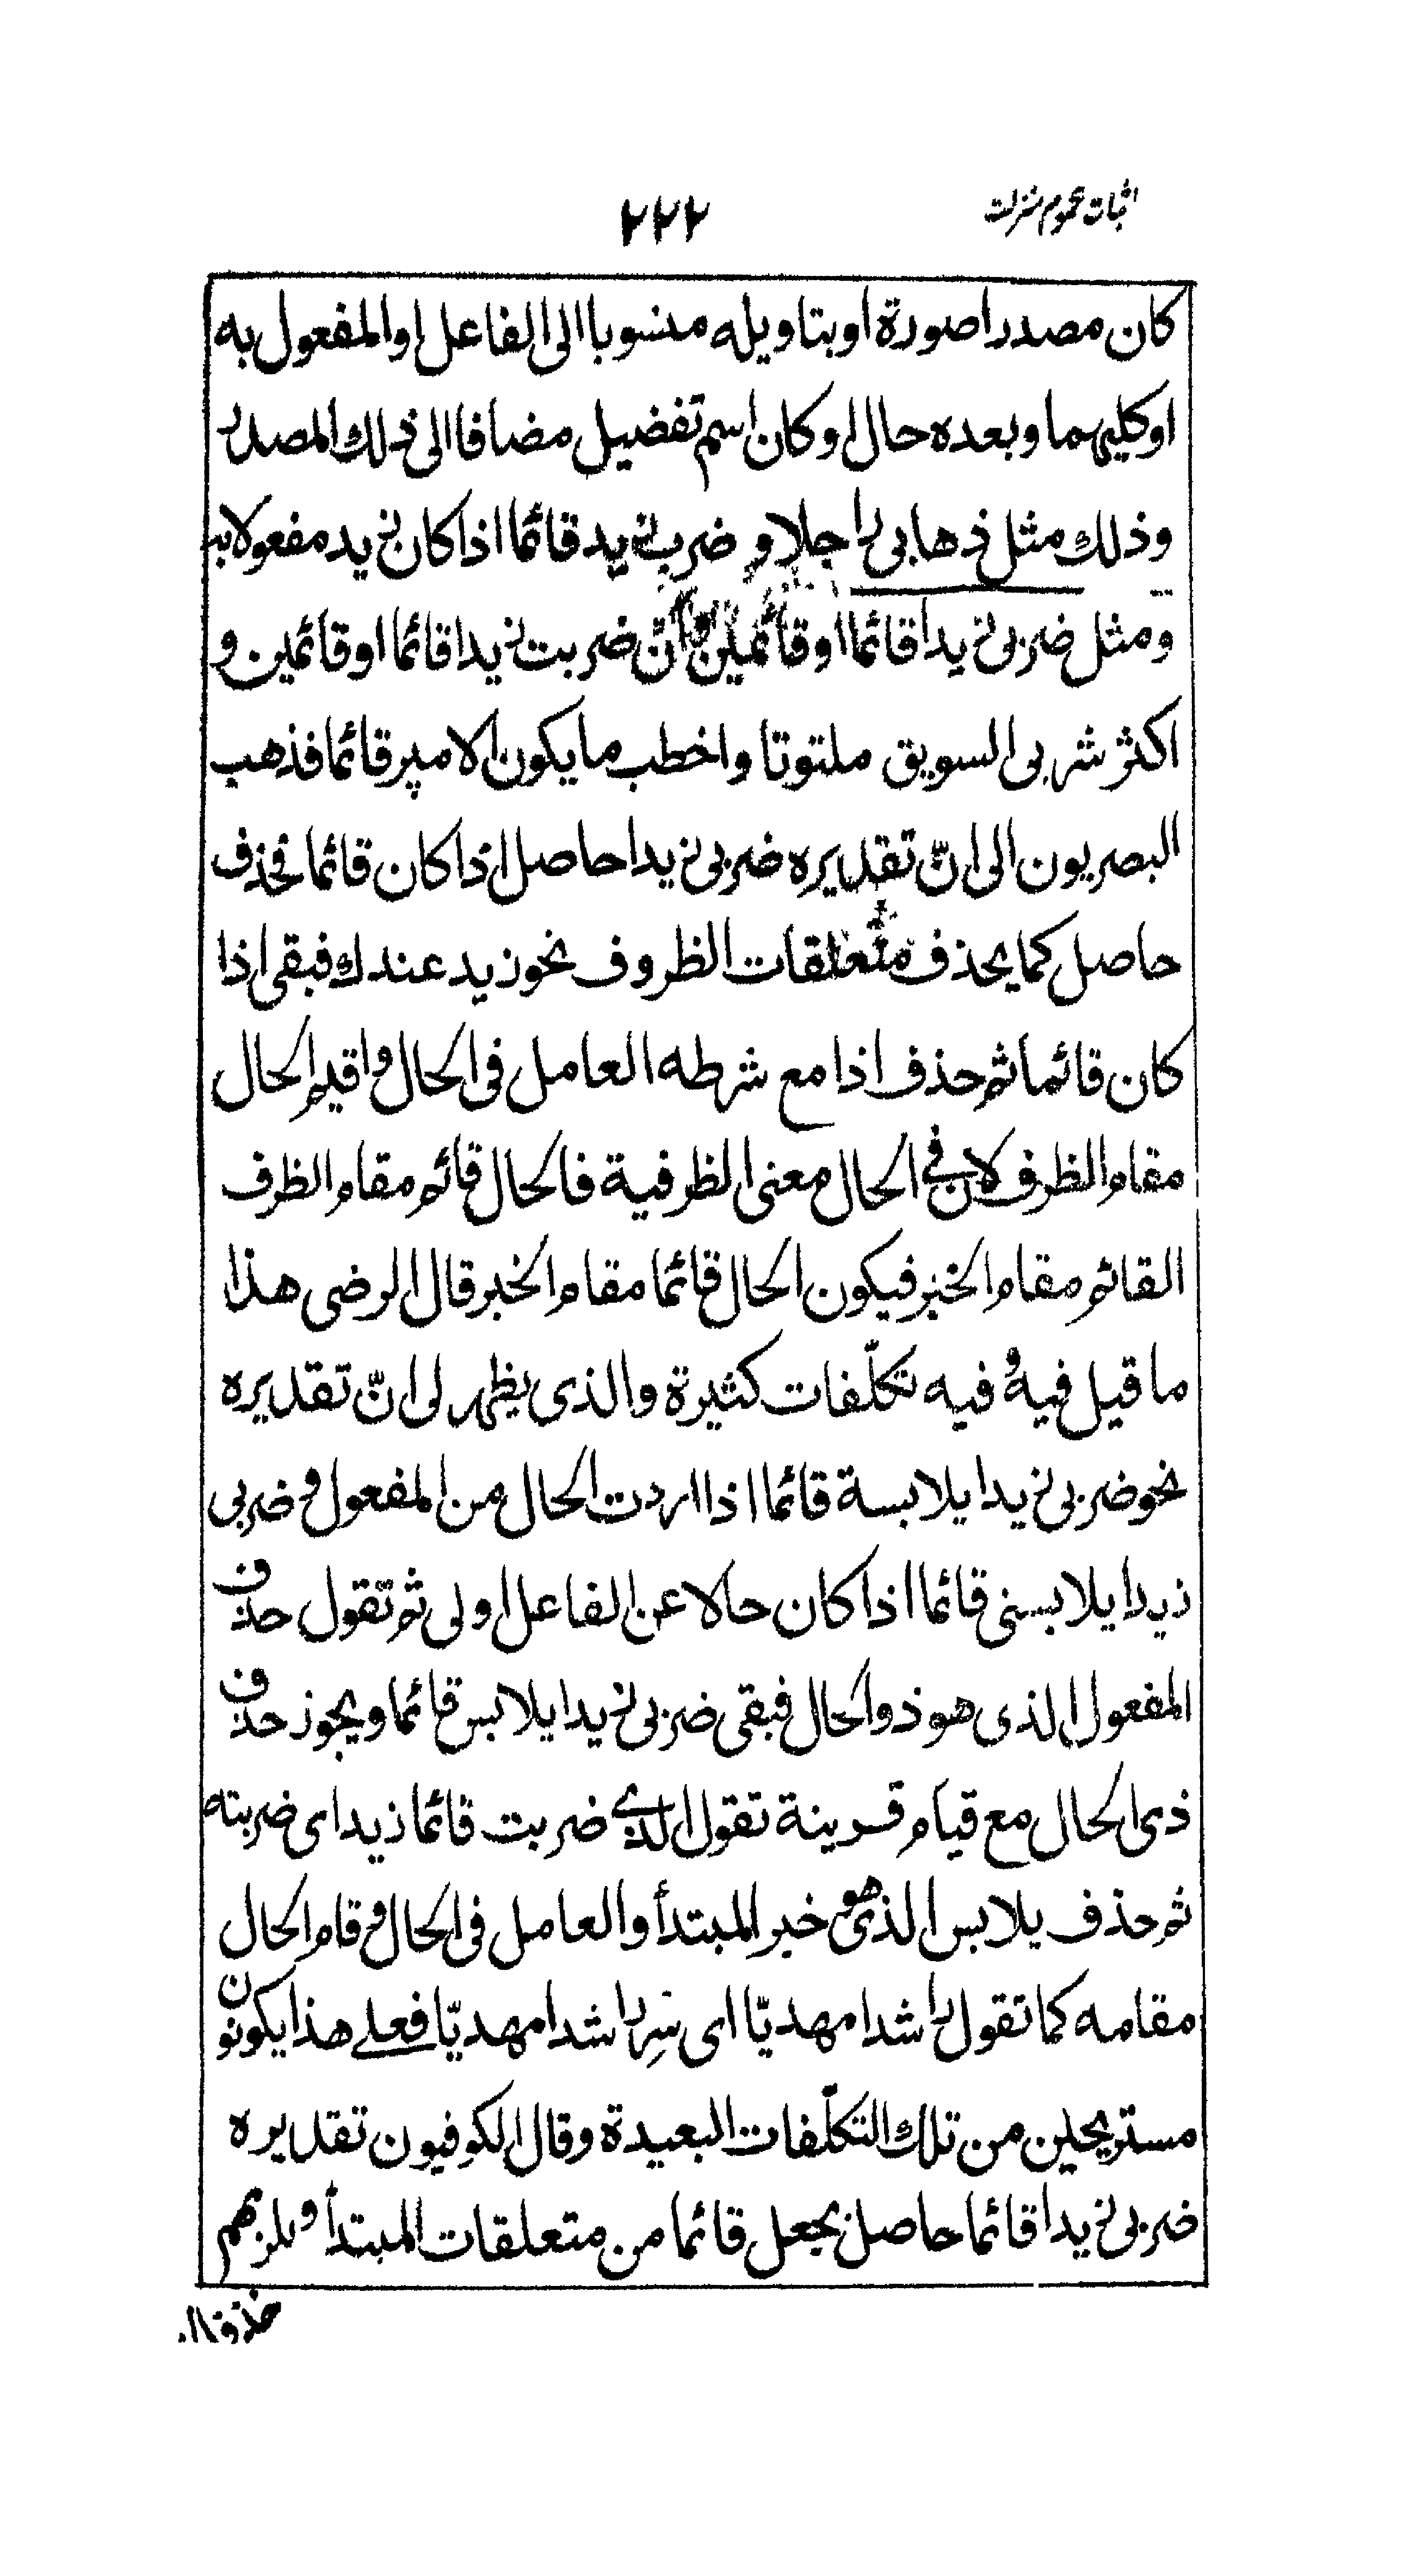 اثبات عموم منزلت
۲۲۲
كان مصدرا صورة او بتاويله منسوبا الى الفاعل او المفعول به
او كليهما وبعده حال او كان اسم تفضيل مضافا الى ذلك المصدر
وذلك مثل ذهابى راجلا و ضرب زيد قائما اذا كان زيد مفعولا به
ومثل ضربى زيدا قائما او قائمين وانّ ضربت زيدا قائما او قائمين و
اكثر شربى السويق ملتوتا واخطب ما يكون الامير قائما فذهب
البصريون الى انّ تقديره ضربى زيدا حاصل اذا كان قائما فحذف
حاصل كما يحذف متعلقات الظروف نحو زيد عندك فبقى اذا
كان قائما ثم حذف اذا مع شرطه العامل فى الحال واقيم الحال
مقام الظرف لان فى الحال معنى الظرفية فالحال قائم مقام الظرف
القائم مقام الخبر فيكون الحال قائما مقام الخبر قال الرضى هذا
ما قيل فيه و فيه تكلّفات كثيرة والذى يظهر لى انّ تقديره
نحو ضربى زيدا يلابسة قائما اذا اردت الحال من المفعول و ضربى
زيدا يلابسنى قائما اذا كان حالا عن الفاعل اولى ثم تقول حذف
المفعول الذى هو ذو الحال فبقى ضربى زيدا يلابس قائما ويجوز حذف
ذى الحال مع قيام قرينة تقول الذى ضربت قائما زيدا اى ضربته
ثم حذف يلابس الذى هو خبر المبتدأ والعامل فى الحال و قام الحال
مقامه كما تقول راشدا مهديّا اى سِر راشدا مهديّا فعلى هذا يكونون
مستريحين من تلك التكلّفات البعيدة وقال الكوفيون تقديره
ضربى زيدا قائما حاصل بجعل قائما من متعلقات المبتدأ ويلزمهم